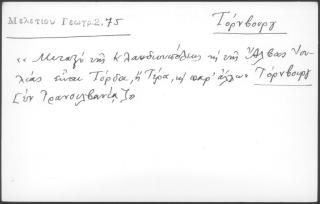 Μελετίου Γεωγρ. 2, 75
Τόρνβουργ
«Μεταξὺ τῆς Κλαυδιουπόλεως κὴ τῆς Ἄλβας Ἰου-
λίας εἶναι Τόρδα, ἢ Τύρα, κὴ παρ' ἄλλων Τόρνβουργ
[ἐν Τρανσυλβανίᾳ]»